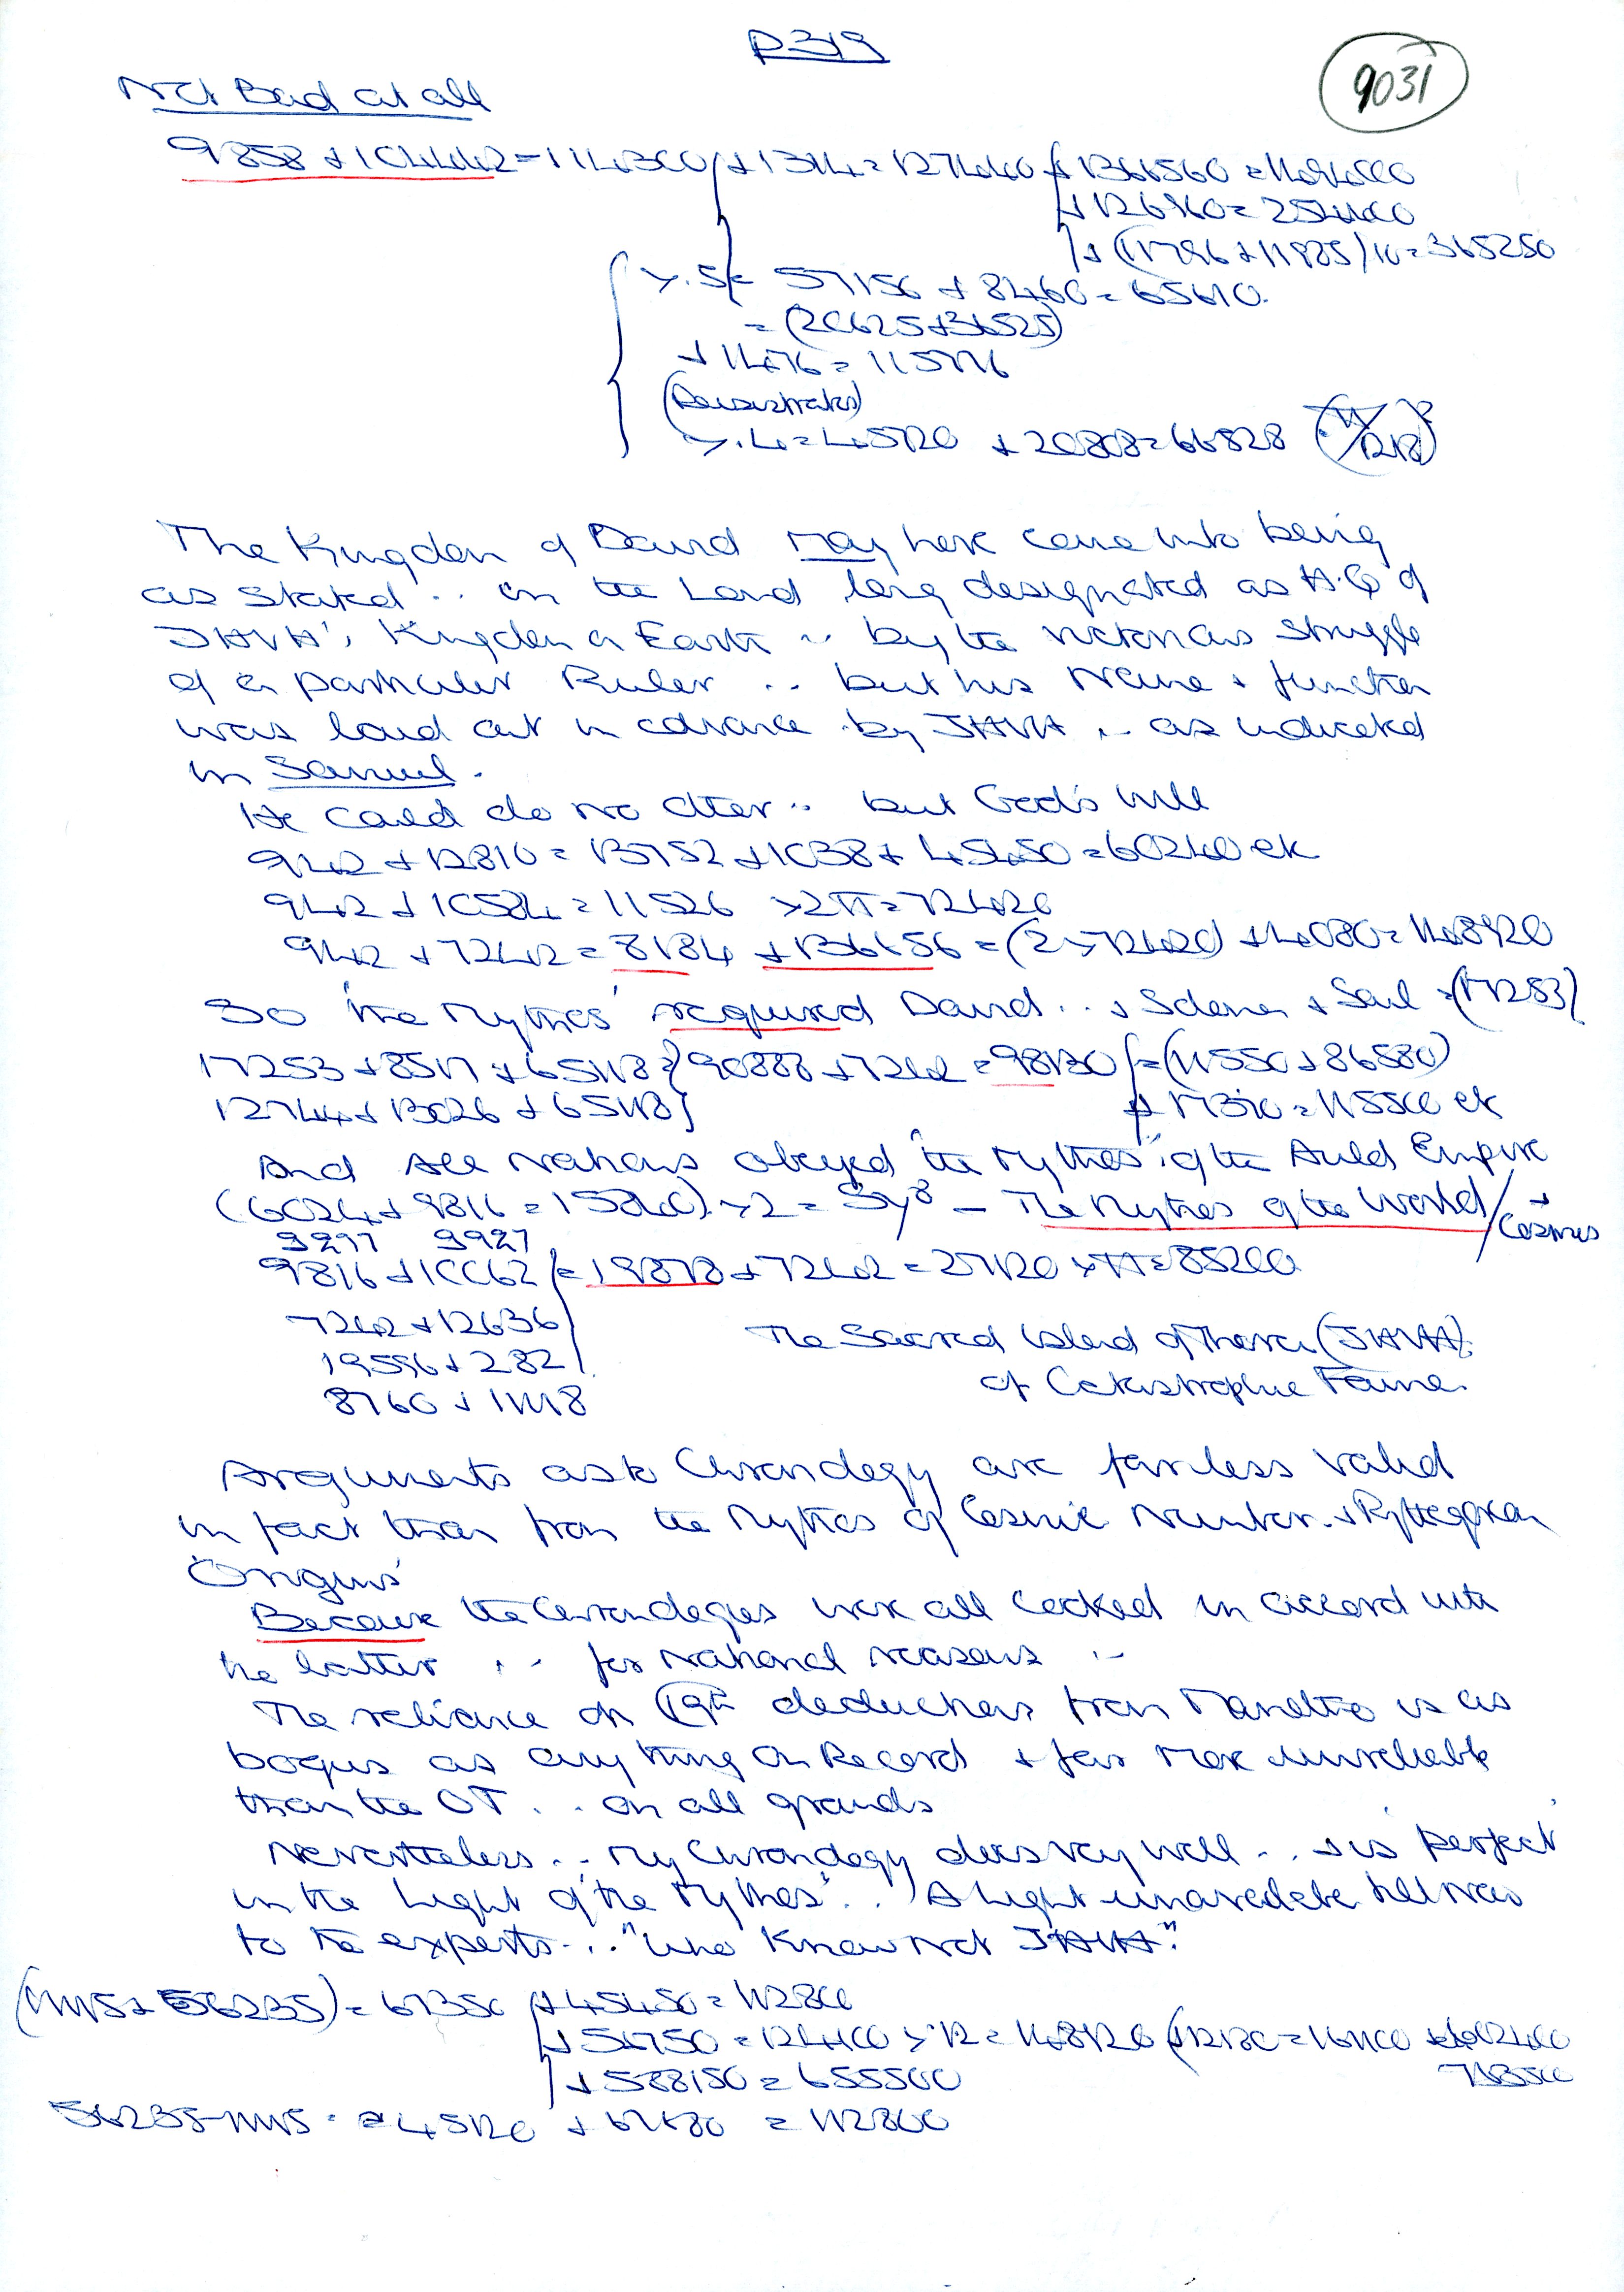 P319
9031
Not Bad at all
9858 + 104442 = 114300
+ 1366560 =
+ 126960 = 254400
= 365250
57156 + 8460 = 65610
= (20625 + 36525)
(Peisistratos)
+ 20808 = 66828
The Kingdom of David May have come into being
as stated .. in the Land long designated as H.Q of
JAVA's Kingdom on Earth .. by the victorious struggle
of a particular Ruler .. but his Name + function
was laid out in advance by JAVA .. as indicated
in Samuel.
He could do no other .. but God's will
942 + 12810 = 13752 + 1038 + 45450 = 60240 etc
942 + 10584 = 11526 > 2π = 72420
942 + 7242 = 8184 + 136656 = (2 > 72420) + 4080 = 148920
So 'the Mythos' required David .. + Solomon + Saul = (17253)
17253 + 8517 + 65118 = } 90888 + 7242 = 98130 { = (11550 + 86580)
12744 + 13026 + 65118 }
+ 17370 = 115500 etc
And all Nations obeyed "the Mythos" of the Auld Empire
(6024 + 9816 = 15840) > 2 = Sy³ – The Mythos of the World / + Cosmos
9297 9927
9816 + 10062 { = 19878 + 7242 = 27120 > π = 85200
7242 + 12636
19596 + 282
8760 + 11118
The Sacred Island of Thera (JAVA)
of Catastrophic Fame.
Arguments as to Chronology are far less valid
in fact than from the Mythos of Cosmic Number + Pythagorean
Origins'
Because the Chronologies were all Cooked in accord with
the latter .. for National reasons ..
The reliance on 19th deductions from Manetho is as
bogus as anything on Record + far more unreliable
than the OT .. on all grounds
Nevertheless .. My Chronology does very well .. + is perfect
in the Light of 'the Mythos' .. A Light unavailable till now
to the experts .. "who Know Not JAVA".
(11115 + 56235) = 67350 { + 45450 = 112800
+ 56750 = 124100 > 12 = 148920
+ 588150 = 655500
56235 - 11115 = 45120 + 67680 = 112800